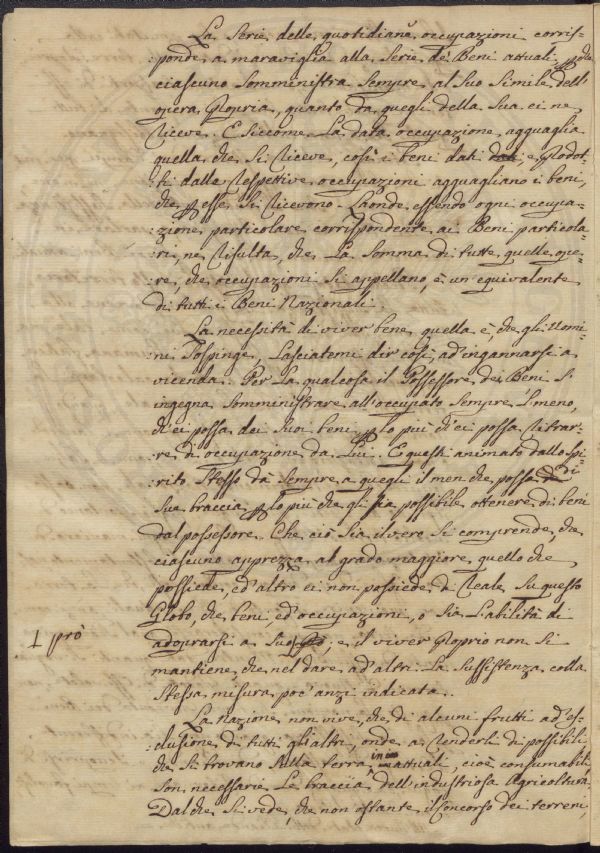 La Serie delle quotidiane occupazioni corris-
:ponde a maraviglia alla Serie de' Beni attuali, che
ciascuno Somministra Sempre al Suo Simile dell'
opera Propria, quanto da quegli della Sua ei ne
Riceve. E Siccome La data occupazione agguaglia
quella, che Si Riceve, così i beni dati e Prodot-
:ti dalle Respettive occupazioni agguagliano i beni,
che esse Si Ricevono. Laonde essendo ogni occupa-
:zione particolare corrispondente ai Beni particola-
:ri, ne Risulta, che La Somma di tutte quelle ope-
:re, che occupazioni Si appellano, è un equivalente
di tutti i Beni Nazionali.
La necessità di viver bene quella è, che gli Uomi-
:ni Sospinge, Lasciatemi dir così, ad'ingannarsi a
vicenda. Per La qualcosa il Possessore dei Beni Si
ingegna Somministrare all'occupato Sempre il meno,
ch'ei possa dei Suoi beni, lo più ch'ei possa Ritrar-
:re di occupazione da Lui. E questi animato dallo Spi-
:rito Stesso dà Sempre a quegli il men che possa di
Sue braccia lo più che gli Sia possibile ottenere di beni
dal possessore. Che ciò Sia il vero Si comprende, che
ciascuno apprezza al grado maggiore quello che
possiede, ed'altro ei non possiede di Reale Su questo
Globo, che beni ed'occupazioni, o Sia L'abilità di
adoprarsi a Suo, e il viver Proprio non Si
⊥ prò
mantiene, che nel dare ad'altri La Sussistenza colla
Stessa misura poc'anzi indicata.
La Nazione non vive, che di alcuni frutti ad'es-
:clusione di tutti gli altri, onde a Renderli di possibili
che Si trovano Sulla terra in attuali, cioè consumabili
Son necessarie Le braccia dell'industriosa Agricoltura.
Dal che Si vede, che non ostante il Concorso dei terreni,